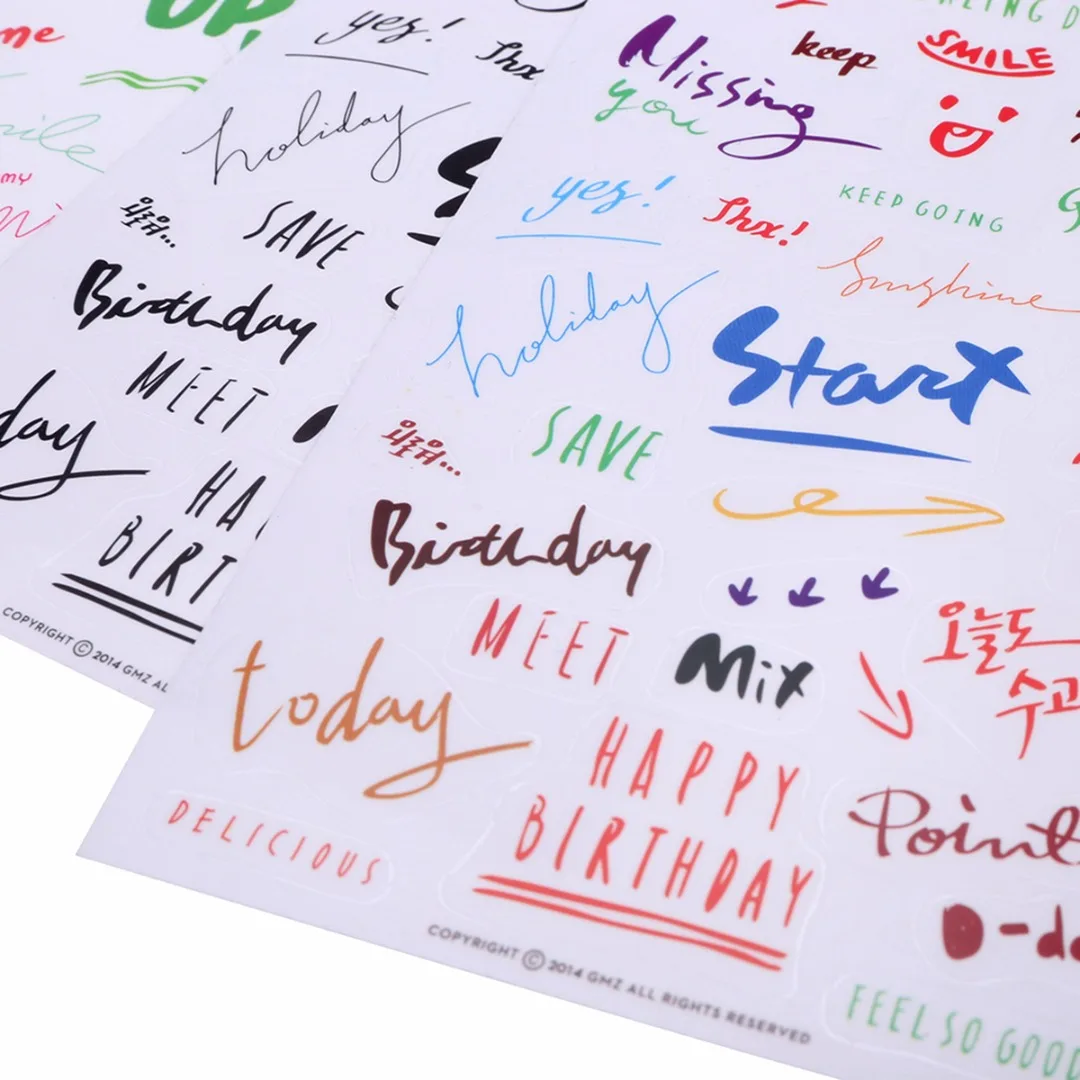 UP,
me
my
yes!
Thx
holiday
SAVE
Birthday
MEET
day
HA
BIRT
COPYRIGHT © 2014 GMZ AL
keep
SMILE
Missing
you
KEEP GOING
yes!
Thx!
Sunshine
holiday
Start
SAVE
Birthday
MEET
Mix
오늘도
수고
today
HAPPY
BIRTHDAY
Point
DELICIOUS
D-da
FEEL SO GOOD
COPYRIGHT © 2014 GMZ ALL RIGHTS RESERVED